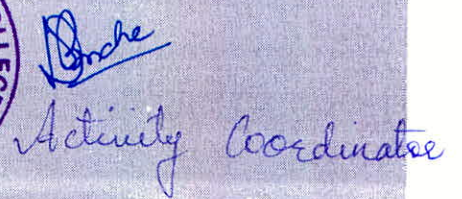 Activity Coordinator